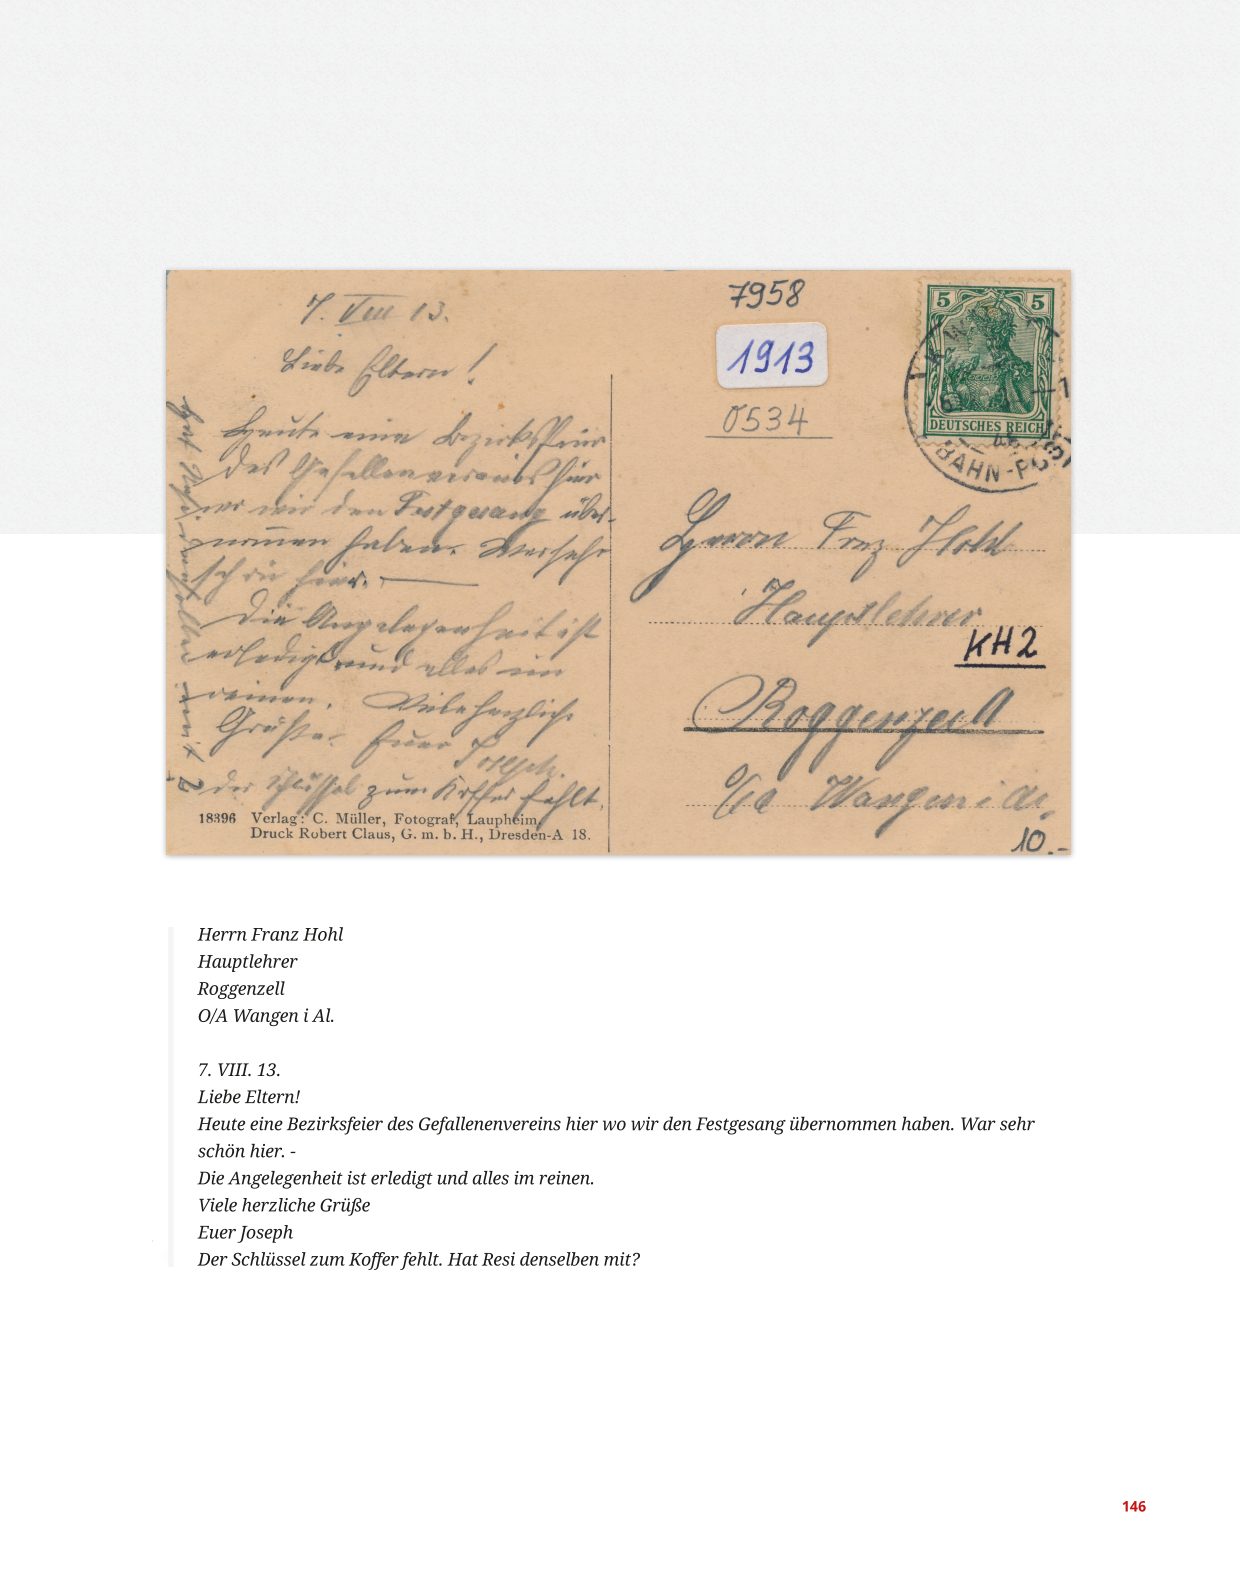 7. VIII 13.
Liebe Eltern!
Heute eine Bezirksfeier
des Gesellenvereins hier
wo wir den Festgesang über-
nommen haben. War sehr
schön hier. —
Die Angelegenheit ist
erledigt und alles im
reinen. Viele herzliche
Grüße Euer Joseph.
der Schlüssel zum Koffer fehlt.
Hat Resi denselben mit?
18396 Verlag: C. Müller, Fotograf, Laupheim.
Druck Robert Claus, G. m. b. H., Dresden-A 18.
7958
1913
0534
5 5
DEUTSCHES REICH
BAHN-POST
Herrn Frz Hohl
Hauptlehrer
KH2
Roggenzell
O/A Wangen i Al.
10.-
Herrn Franz Hohl
Hauptlehrer
Roggenzell
O/A Wangen i Al.
7. VIII. 13.
Liebe Eltern!
Heute eine Bezirksfeier des Gefallenenvereins hier wo wir den Festgesang übernommen haben. War sehr
schön hier. -
Die Angelegenheit ist erledigt und alles im reinen.
Viele herzliche Grüße
Euer Joseph
Der Schlüssel zum Koffer fehlt. Hat Resi denselben mit?
146